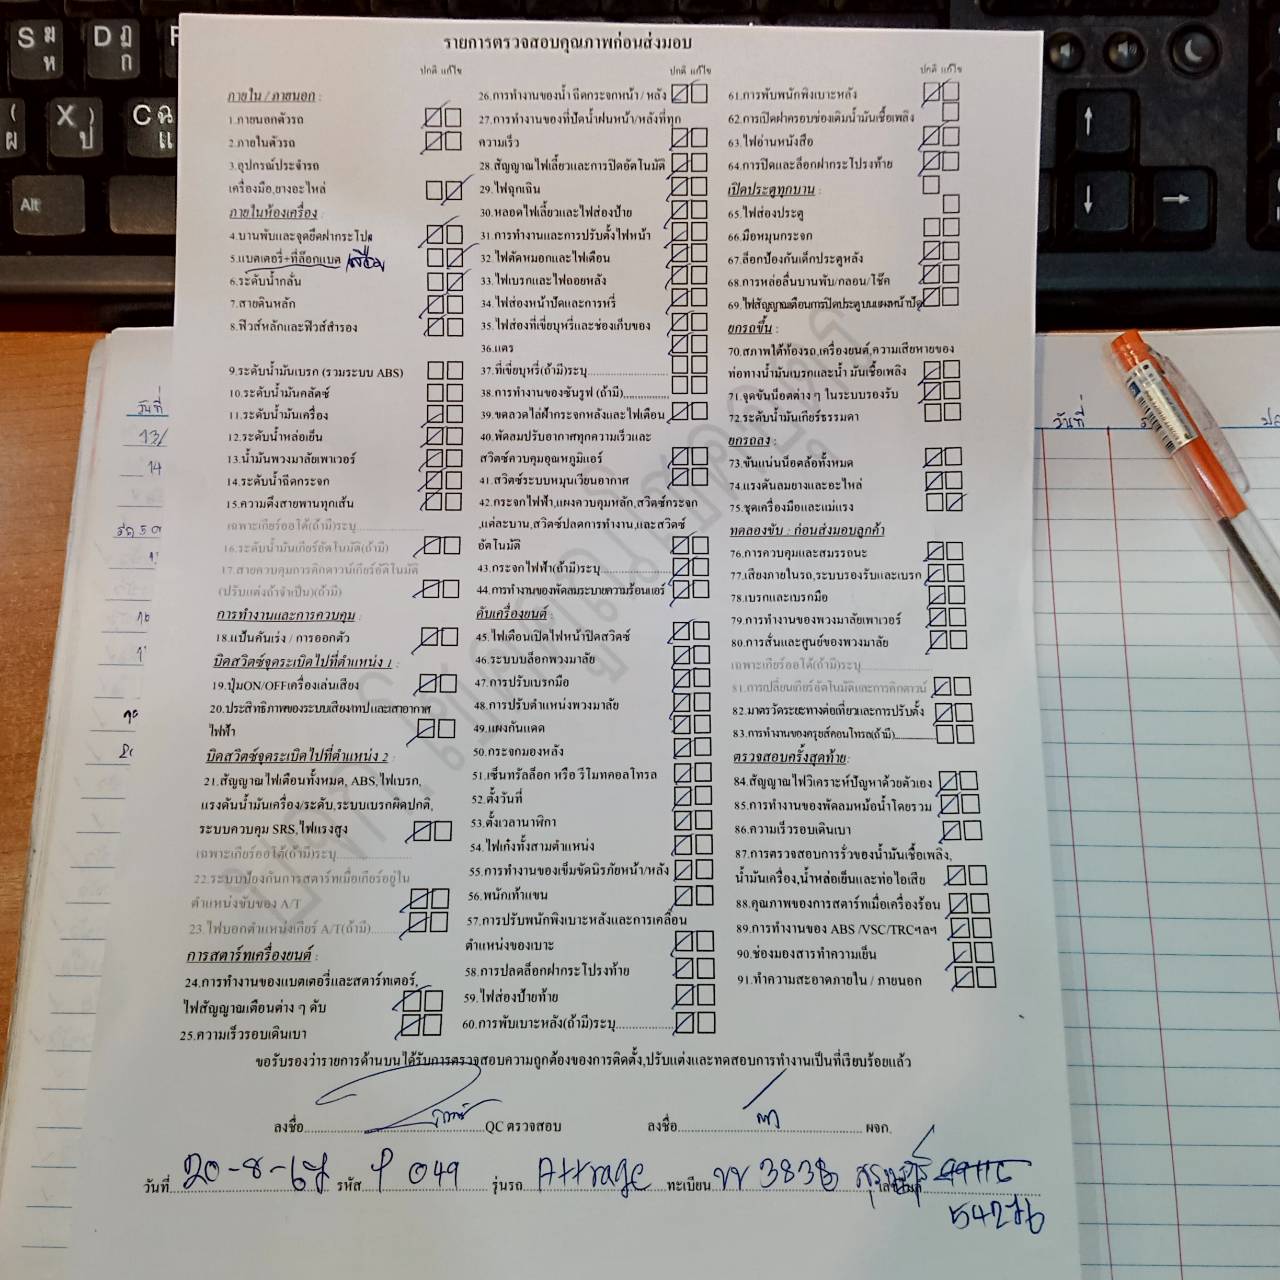 รายการตรวจสอบคุณภาพก่อนส่งมอบ
ปกติ แก้ไข
ภายใน / ภายนอก :
1.ภายนอกตัวรถ
2.ภายในตัวรถ
3.อุปกรณ์ประจำรถ
เครื่องมือ,ยางอะไหล่
ภายในห้องเครื่อง :
4.บานพับและจุดยึดฝากระโปร
5.แบตเตอรี่+ที่ล๊อกแบต
6.ระดับน้ำกลั่น
7.สายดินหลัก
8.ฟิวส์หลักและฟิวส์สำรอง
9.ระดับน้ำมันเบรก (รวมระบบ ABS)
10.ระดับน้ำมันคลัตซ์
11.ระดับน้ำมันเครื่อง
12.ระดับน้ำหล่อเย็น
13.น้ำมันพวงมาลัยเพาเวอร์
14.ระดับน้ำฉีดกระจก
15.ความตึงสายพานทุกเส้น
เฉพาะเกียร์ออโต้(ถ้ามี)ระบุ
16.ระดับน้ำมันเกียร์อัตโนมัติ(ถ้ามี)
17.สายควบคุมการคิกดาวน์เกียร์อัตโนมัติ
(ปรับแต่งถ้าจำเป็น)(ถ้ามี)
การทำงานและการควบคุม :
18.แป้นคันเร่ง / การออกตัว
บิดสวิตซ์จุดระเบิดไปที่ตำแหน่ง 1 :
19.ปุ่มON/OFFเครื่องเล่นเสียง
20.ประสิทธิภาพของระบบเสียง/เทปและเสาอากาศ
ไฟฟ้า
บิดสวิตซ์จุดระเบิดไปที่ตำแหน่ง 2 :
21.สัญญาณไฟเตือนทั้งหมด, ABS,ไฟเบรก,
แรงดันน้ำมันเครื่อง/ระดับ,ระบบเบรกผิดปกติ,
ระบบควบคุม SRS,ไฟแรงสูง
เฉพาะเกียร์ออโต้(ถ้ามี)ระบุ
22.ระบบป้องกันการสตาร์ทเมื่อเกียร์อยู่ใน
ตำแหน่งขับของ A/T
23.ไฟบอกตำแหน่งเกียร์ A/T(ถ้ามี)
การสตาร์ทเครื่องยนต์ :
24.การทำงานของแบตเตอรี่และสตาร์ทเตอร์,
ไฟสัญญาณเตือนต่าง ๆ ดับ
25.ความเร็วรอบเดินเบา
ปกติ แก้ไข
26.การทำงานของน้ำ ฉีดกระจกหน้า / หลัง
27.การทำงานของที่ปัดน้ำฝนหน้า/หลังที่ทุก
ความเร็ว
28.สัญญาณไฟเลี้ยวและการปิดอัตโนมัติ
29.ไฟฉุกเฉิน
30.หลอดไฟเลี้ยวและไฟส่องป้าย
31.การทำงานและการปรับตั้งไฟหน้า
32.ไฟตัดหมอกและไฟเตือน
33.ไฟเบรกและไฟถอยหลัง
34.ไฟส่องหน้าปัดและการหรี่
35.ไฟส่องที่เขี่ยบุหรี่และช่องเก็บของ
36.แตร
37.ที่เขี่ยบุหรี่(ถ้ามี)ระบุ
38.การทำงานของซันรูฟ (ถ้ามี)
39.ขดลวดไล่ฝ้ากระจกหลังและไฟเตือน
40.พัดลมปรับอากาศทุกความเร็วและ
สวิตซ์ควบคุมอุณหภูมิแอร์
41.สวิตซ์ระบบหมุนเวียนอากาศ
42.กระจกไฟฟ้า,แผงควบคุมหลัก,สวิตซ์กระจก
,แต่ละบาน,สวิตซ์ปลดการทำงาน,และสวิตซ์
อัตโนมัติ
43.กระจกไฟฟ้า(ถ้ามี)ระบุ
44.การทำงานของพัดลมระบายความร้อนแอร์
ดับเครื่องยนต์ :
45.ไฟเตือนเปิดไฟหน้าปิดสวิตซ์
46.ระบบบล็อกพวงมาลัย
47.การปรับเบรกมือ
48.การปรับตำแหน่งพวงมาลัย
49.แผงกันแดด
50.กระจกมองหลัง
51.เซ็นทรัลล็อก หรือ รีโมทคอลโทรล
52.ตั้งวันที่
53.ตั้งเวลานาฬิกา
54.ไฟเก๋งทั้งสามตำแหน่ง
55.การทำงานของเข็มขัดนิรภัยหน้า/หลัง
56.พนักเท้าแขน
57.การปรับพนักพิงเบาะหลังและการเคลื่อน
ตำแหน่งของเบาะ
58.การปลดล็อกฝากระโปรงท้าย
59.ไฟส่องป้ายท้าย
60.การพับเบาะหลัง(ถ้ามี)ระบุ
ปกติ แก้ไข
61.การพับพนักพิงเบาะหลัง
62.การเปิดฝาครอบช่องเติมน้ำมันเชื้อเพลิง
63.ไฟอ่านหนังสือ
64.การปิดและล็อกฝากระโปรงท้าย
เปิดประตูทุกบาน :
65.ไฟส่องประตู
66.มือหมุนกระจก
67.ล็อกป้องกันเด็กประตูหลัง
68.การหล่อลื่นบานพับ/กลอน/โช๊ค
69.ไฟสัญญาณเตือนการปิดประตูบนแผงหน้าปัด
ยกรถขึ้น :
70.สภาพใต้ท้องรถ,เครื่องยนต์,ความเสียหายของ
ท่อทางน้ำมันเบรกและน้ำ มันเชื้อเพลิง
71.จุดขันน็อตต่าง ๆ ในระบบรองรับ
72.ระดับน้ำมันเกียร์ธรรมดา
ยกรถลง :
73.ขันแน่นน็อตล้อทั้งหมด
74.แรงดันลมยางและอะไหล่
75.ชุดเครื่องมือและแม่แรง
ทดลองขับ : ก่อนส่งมอบลูกค้า
76.การควบคุมและสมรรถนะ
77.เสียงภายในรถ,ระบบรองรับและเบรก
78.เบรกและเบรกมือ
79.การทำงานของพวงมาลัยเพาเวอร์
80.การสั่นและศูนย์ของพวงมาลัย
เฉพาะเกียร์ออโต้(ถ้ามี)ระบุ
81.การเปลี่ยนเกียร์อัตโนมัติและการคิกดาวน์
82.มาตรวัดระยะทางต่อเที่ยวและการปรับตั้ง
83.การทำงานของครุยส์คอนโทรล(ถ้ามี)
ตรวจสอบครั้งสุดท้าย:
84.สัญญาณไฟวิเคราะห์ปัญหาด้วยตัวเอง
85.การทำงานของพัดลมหม้อน้ำโดยรวม
86.ความเร็วรอบเดินเบา
87.การตรวจสอบการรั่วของน้ำมันเชื้อเพลิง,
น้ำมันเครื่อง,น้ำหล่อเย็นและท่อไอเสีย
88.คุณภาพของการสตาร์ทเมื่อเครื่องร้อน
89.การทำงานของ ABS /VSC/TRCฯลฯ
90.ช่องมองสารทำความเย็น
91.ทำความสะอาดภายใน / ภายนอก
ขอรับรองว่ารายการด้านบนได้รับการตรวจสอบความถูกต้องของการติดตั้ง,ปรับแต่งและทดสอบการทำงานเป็นที่เรียบร้อยแล้ว
ลงชื่อ QC ตรวจสอบ ลงชื่อ ผจก.
วันที่ 20-8-67 รหัส 049 รุ่นรถ Attrage ทะเบียน 3838
54276
วันที่
13/
14
วันที่
S
ม
ห
D
ฎ
ก
X
ป
C
ฉ
แ
Alt